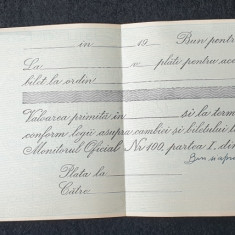 în 19 Bun pentru
La va plăti pentru ace
bilet la ordin
Valoarea primită în și la term
conform legii asupra cambiei și biletului
Monitorul Oficial Nr. 100, partea I, din
Bun și apr
Plata la
Către